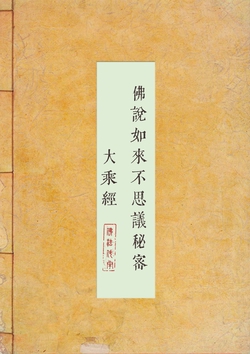 佛說如來不思議秘審
大乘經